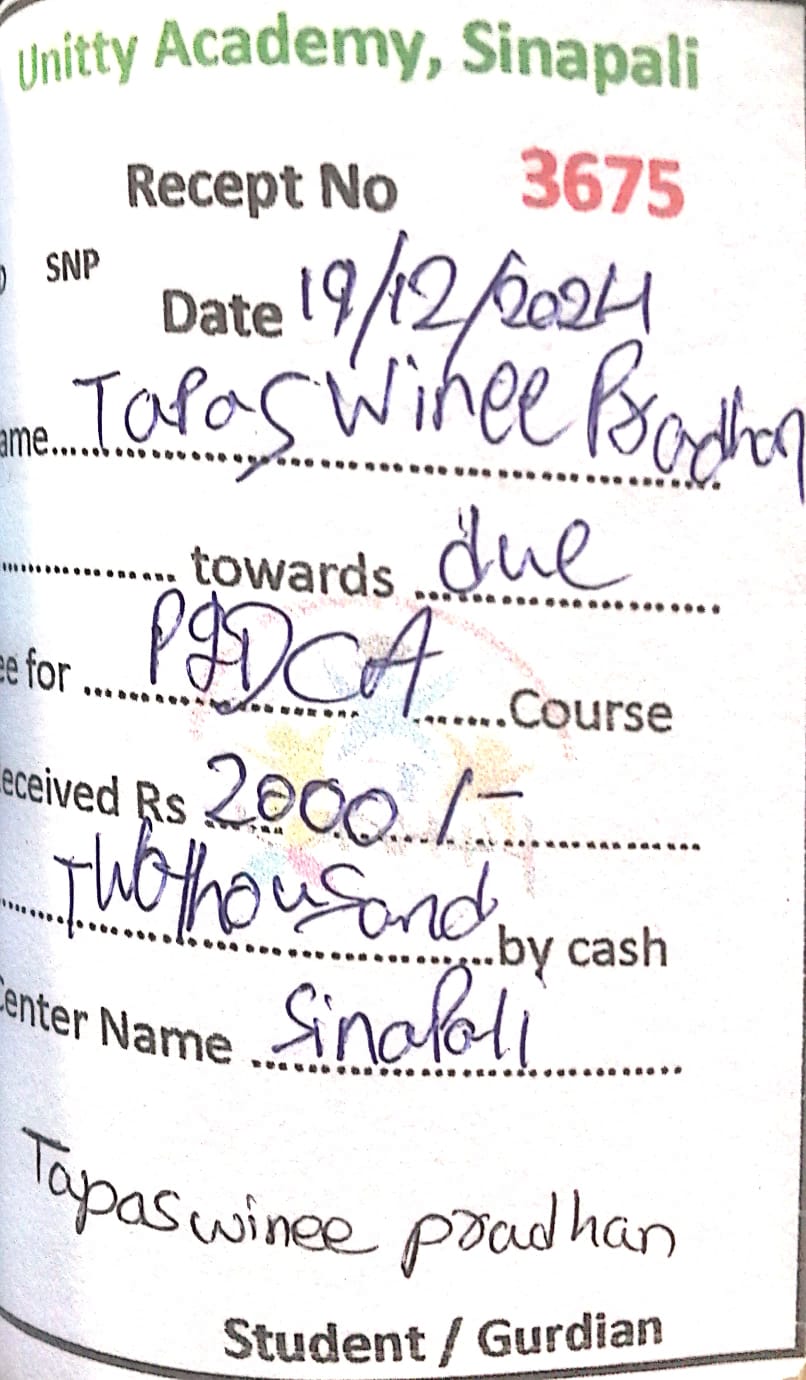 Unitty Academy, Sinapali
Recept No 3675
SNP
Date 19/12/2024
ame.....Tapaswinee Pradhan
................. towards ..due
ee for ....PGDCA.......Course
eceived Rs 2000/-
Two thousand by cash
Center Name ....Sinapali
Tapaswinee pradhan
Student / Gurdian